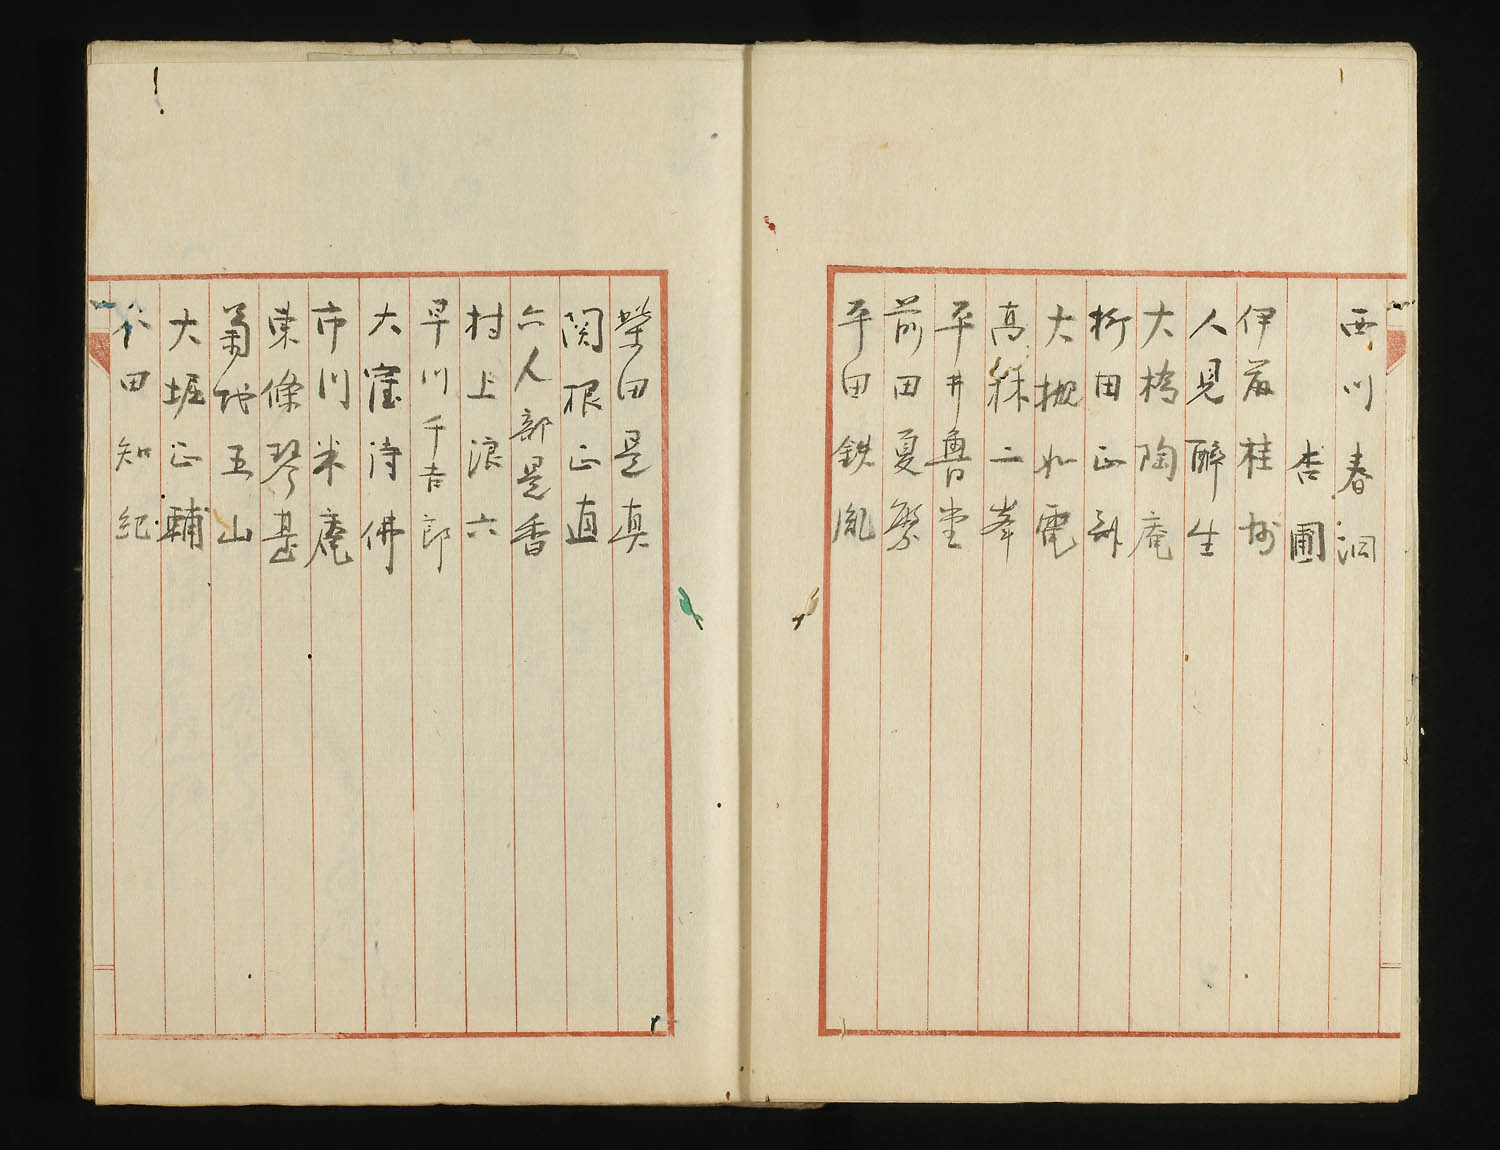 西川春洞
杏圃
伊藤桂州
人見酔生
大橋陶庵
柳田正斎
大槻如電
高森二峯
平井魯堂
前田夏繁
平田鉄胤
柴田是真
関根正直
六人部是香
村上浪六
早川千吉郎
大窪詩佛
市川米庵
東條琴臺
菊地五山
大堀正輔
田知紀